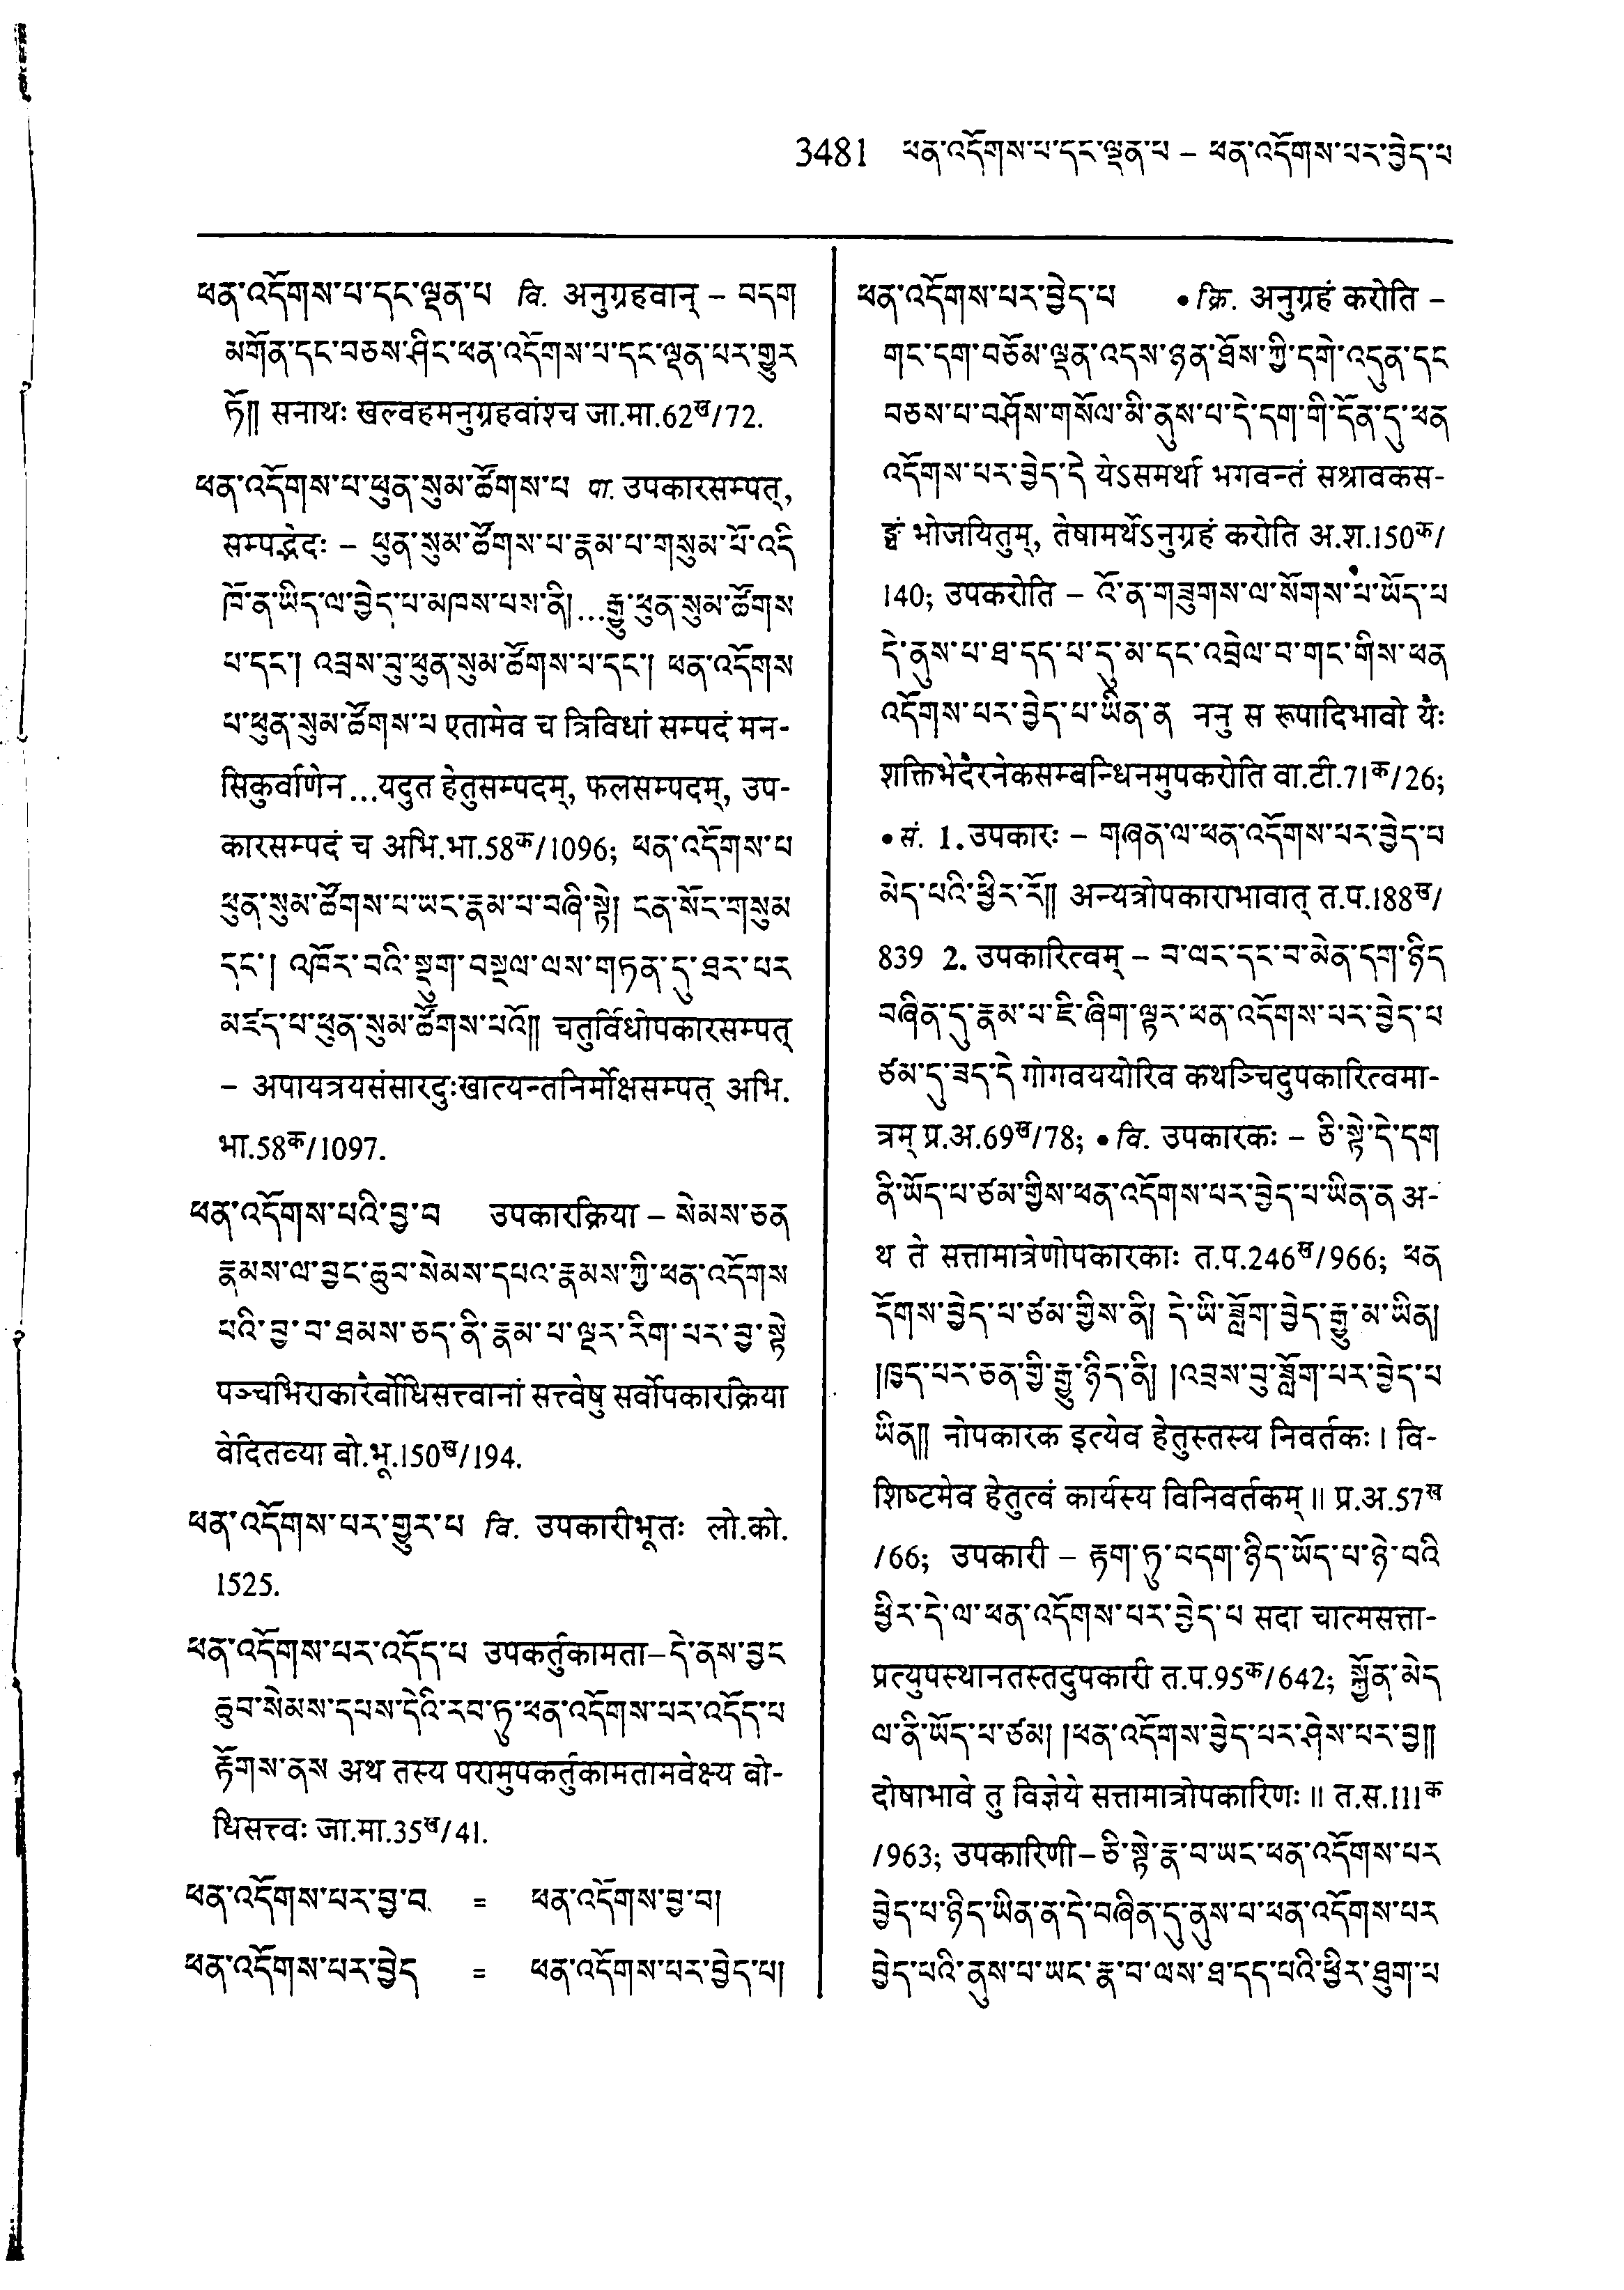 3481 ཕན་འདོགས་པ་དང་ལྡན་པ – ཕན་འདོགས་པར་བྱེད་པ
ཕན་འདོགས་པ་དང་ལྡན་པ वि. अनुग्रहवान् – བདག
མགོན་དང་བཅས་ཤིང་ཕན་འདོགས་པ་དང་ལྡན་པར་གྱུར
ཏོ༎ सनाथः खल्वहमनुग्रहवांश्च जा.मा.62ख/72.
ཕན་འདོགས་པ་ཕུན་སུམ་ཚོགས་པ पा. उपकारसम्पत्,
सम्पद्भेदः – ཕུན་སུམ་ཚོགས་པ་རྣམ་པ་གསུམ་པོ་འདི
ཁོ་ན་ཡིད་ལ་བྱེད་པ་མཁས་པས་ནི།...རྒྱུ་ཕུན་སུམ་ཚོགས
པ་དང་། འབྲས་བུ་ཕུན་སུམ་ཚོགས་པ་དང་། ཕན་འདོགས
པ་ཕུན་སུམ་ཚོགས་པ एतामेव च त्रिविधां सम्पदं मन-
सिकुर्वाणेन...यदुत हेतुसम्पदम्, फलसम्पदम्, उप-
कारसम्पदं च अभि.भा.58क/1096; ཕན་འདོགས་པ
ཕུན་སུམ་ཚོགས་པ་ཡང་རྣམ་པ་བཞི་སྟེ། ངན་སོང་གསུམ
དང་། འཁོར་བའི་སྡུག་བསྔལ་ལས་གཏན་དུ་ཐར་པར
མཛད་པ་ཕུན་སུམ་ཚོགས་པའོ༎ चतुर्विधोपकारसम्पत्
– अपायत्रयसंसारदुःखात्यन्तनिर्मोक्षसम्पत् अभि.
भा.58क/1097.
ཕན་འདོགས་པའི་བྱ་བ उपकारक्रिया – སེམས་ཅན
རྣམས་ལ་བྱང་ཆུབ་སེམས་དཔའ་རྣམས་ཀྱི་ཕན་འདོགས
པའི་བྱ་བ་ཐམས་ཅད་ནི་རྣམ་པ་ལྔར་རིག་པར་བྱ་སྟེ
पञ्चभिराकारैर्बोधिसत्त्वानां सत्त्वेषु सर्वोपकारक्रिया
वेदितव्या बो.भू.150ख/194.
ཕན་འདོགས་པར་གྱུར་པ वि. उपकारीभूतः लो.को.
1525.
ཕན་འདོགས་པར་འདོད་པ उपकर्तुकामता–དེ་ནས་བྱང
ཆུབ་སེམས་དཔས་དེའི་རབ་ཏུ་ཕན་འདོགས་པར་འདོད་པ
རྟོགས་ནས अथ तस्य परामुपकर्तुकामतामवेक्ष्य बो-
धिसत्त्वः जा.मा.35ख/41.
ཕན་འདོགས་པར་བྱ་བ = ཕན་འདོགས་བྱ་བ།
ཕན་འདོགས་པར་བྱེད = ཕན་འདོགས་པར་བྱེད་པ།
ཕན་འདོགས་པར་བྱེད་པ • क्रि. अनुग्रहं करोति –
གང་དག་བཅོམ་ལྡན་འདས་ཉན་ཐོས་ཀྱི་དགེ་འདུན་དང
བཅས་པ་བཤོས་གསོལ་མི་ནུས་པ་དེ་དག་གི་དོན་དུ་ཕན
འདོགས་པར་བྱེད་དེ येऽसमर्था भगवन्तं सश्रावकस-
ङ्घं भोजयितुम्, तेषामर्थेऽनुग्रहं करोति अ.श.150क/
140; उपकरोति – འོ་ན་གཟུགས་ལ་སོགས་པ་ཡོད་པ
དེ་ནུས་པ་ཐ་དད་པ་དུ་མ་དང་འབྲེལ་བ་གང་གིས་ཕན
འདོགས་པར་བྱེད་པ་ཡིན་ན ननु स रूपादिभावो यैः
शक्तिभेदैरनेकसम्बन्धिनमुपकरोति वा.टी.71क/26;
• सं. 1. उपकारः – གཞན་ལ་ཕན་འདོགས་པར་བྱེད་པ
མེད་པའི་ཕྱིར་རོ༎ अन्यत्रोपकाराभावात् त.प.188ख/
839 2. उपकारित्वम् – བ་ལང་དང་བ་མེན་དག་ཉིད
བཞིན་དུ་རྣམ་པ་ཇི་ཞིག་ལྟར་ཕན་འདོགས་པར་བྱེད་པ
ཙམ་དུ་ཟད་དེ गोगवययोरिव कथञ्चिदुपकारित्वमा-
त्रम् प्र.अ.69ख/78; • वि. उपकारकः – ཅི་སྟེ་དེ་དག
ནི་ཡོད་པ་ཙམ་གྱིས་ཕན་འདོགས་པར་བྱེད་པ་ཡིན་ན अ-
थ ते सत्तामात्रेणोपकारकाः त.प.246ख/966; ཕན
དོགས་བྱེད་པ་ཙམ་གྱིས་ནི། དེ་ཡི་ཟློག་བྱེད་རྒྱུ་མ་ཡིན།
།ཁྱད་པར་ཅན་གྱི་རྒྱུ་ཉིད་ནི། །འབྲས་བུ་ཟློག་པར་བྱེད་པ
ཡིན༎ नोपकारक इत्येव हेतुस्तस्य निवर्तकः । वि-
शिष्टमेव हेतुत्वं कार्यस्य विनिवर्तकम् ॥ प्र.अ.57ख
/66; उपकारी – རྟག་ཏུ་བདག་ཉིད་ཡོད་པ་ཉེ་བའི
ཕྱིར་དེ་ལ་ཕན་འདོགས་པར་བྱེད་པ सदा चात्मसत्ता-
प्रत्युपस्थानतस्तदुपकारी त.प.95क/642; སྐྱོན་མེད
ལ་ནི་ཡོད་པ་ཙམ། །ཕན་འདོགས་བྱེད་པར་ཤེས་པར་བྱ༎
दोषाभावे तु विज्ञेये सत्तामात्रोपकारिणः ॥ त.स.111क
/963; उपकारिणी–ཅི་སྟེ་རྣ་བ་ཡང་ཕན་འདོགས་པར
བྱེད་པ་ཉིད་ཡིན་ན་དེ་བཞིན་དུ་ནུས་པ་ཕན་འདོགས་པར
བྱེད་པའི་ནུས་པ་ཡང་རྣ་བ་ལས་ཐ་དད་པའི་ཕྱིར་ཐུག་པ